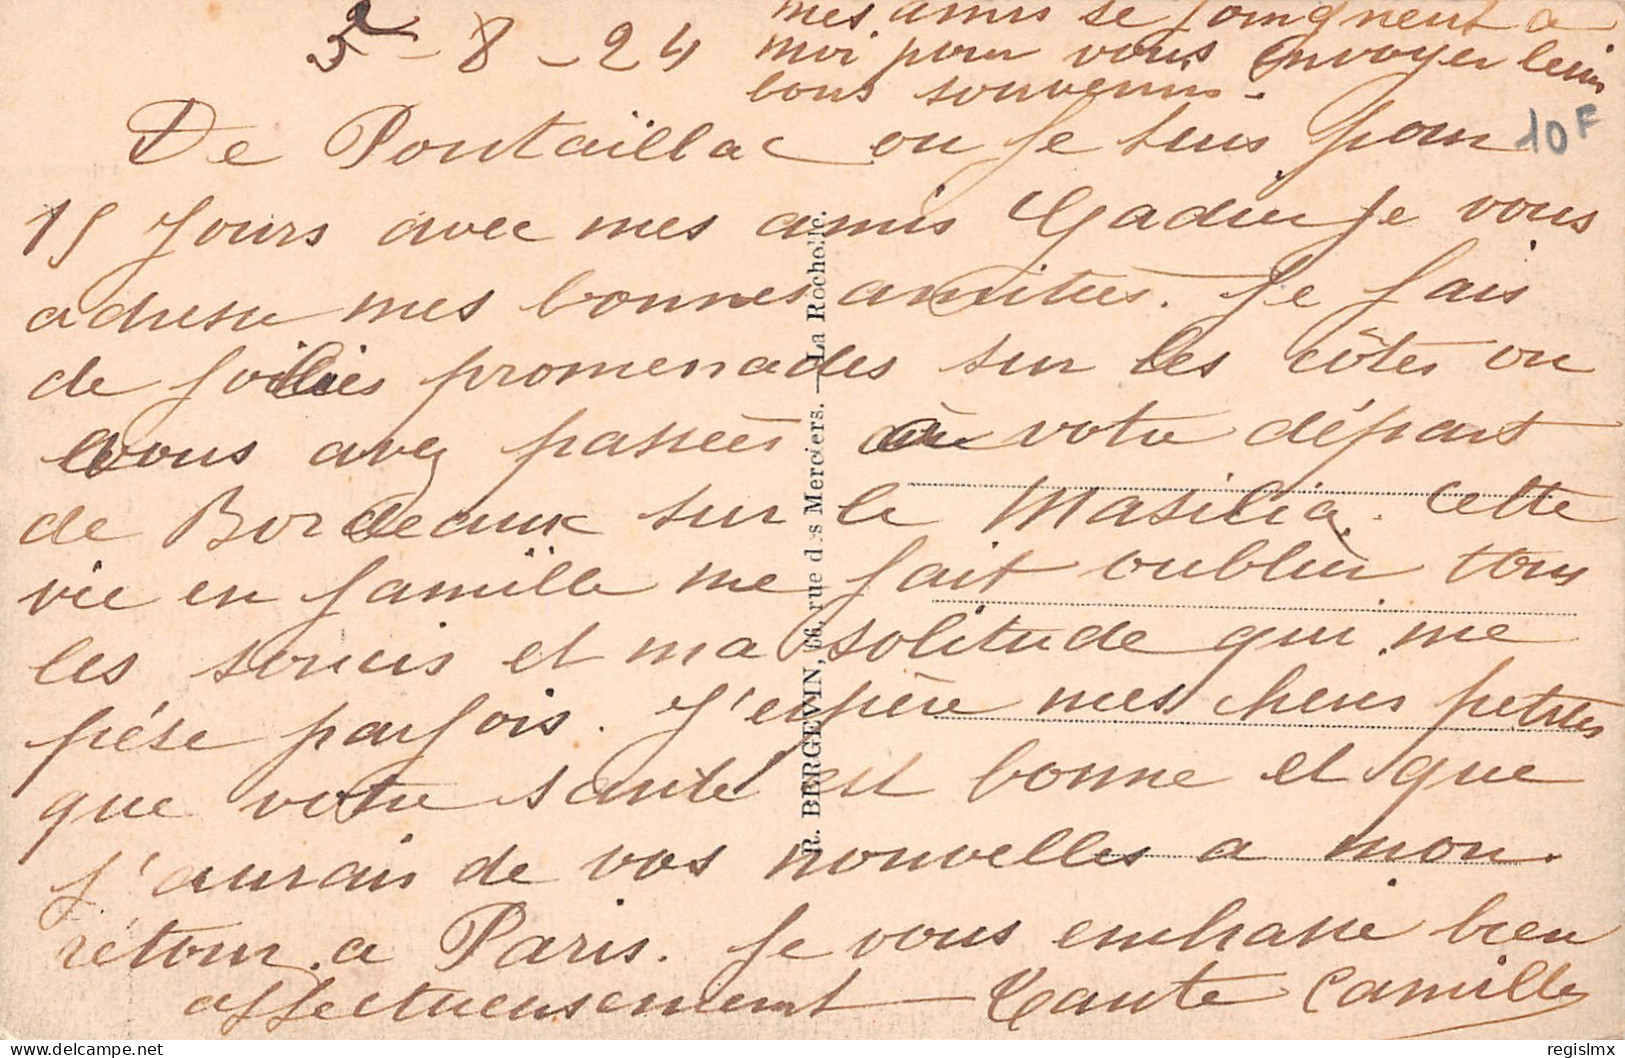 5 - 8 - 24
mes amis se joingnent a
moi pour vous envoyer leurs
bons souvenirs.
De Pontaillac ou je suis pour
15 jours avec mes amis Gadier je vous
adresse mes bonnes amitiés. Je fais
de jolies promenades sur les côtes ou
vous avez passées à votre départ
de Bordeaux sur le Masilia. Cette
vie en famille me fait oublier tous
les soucis et ma solitude qui me
pése parfois. J'espère mes chers petits
que votre santé est bonne et que
j'aurais de vos nouvelles a mon
rétour a Paris. Je vous embrasse bien
affectueusement - Tante Camille
10F
R. BERGEVIN, 66, rue des Merciers. — La Rochelle.
regislmx
delcampe.net